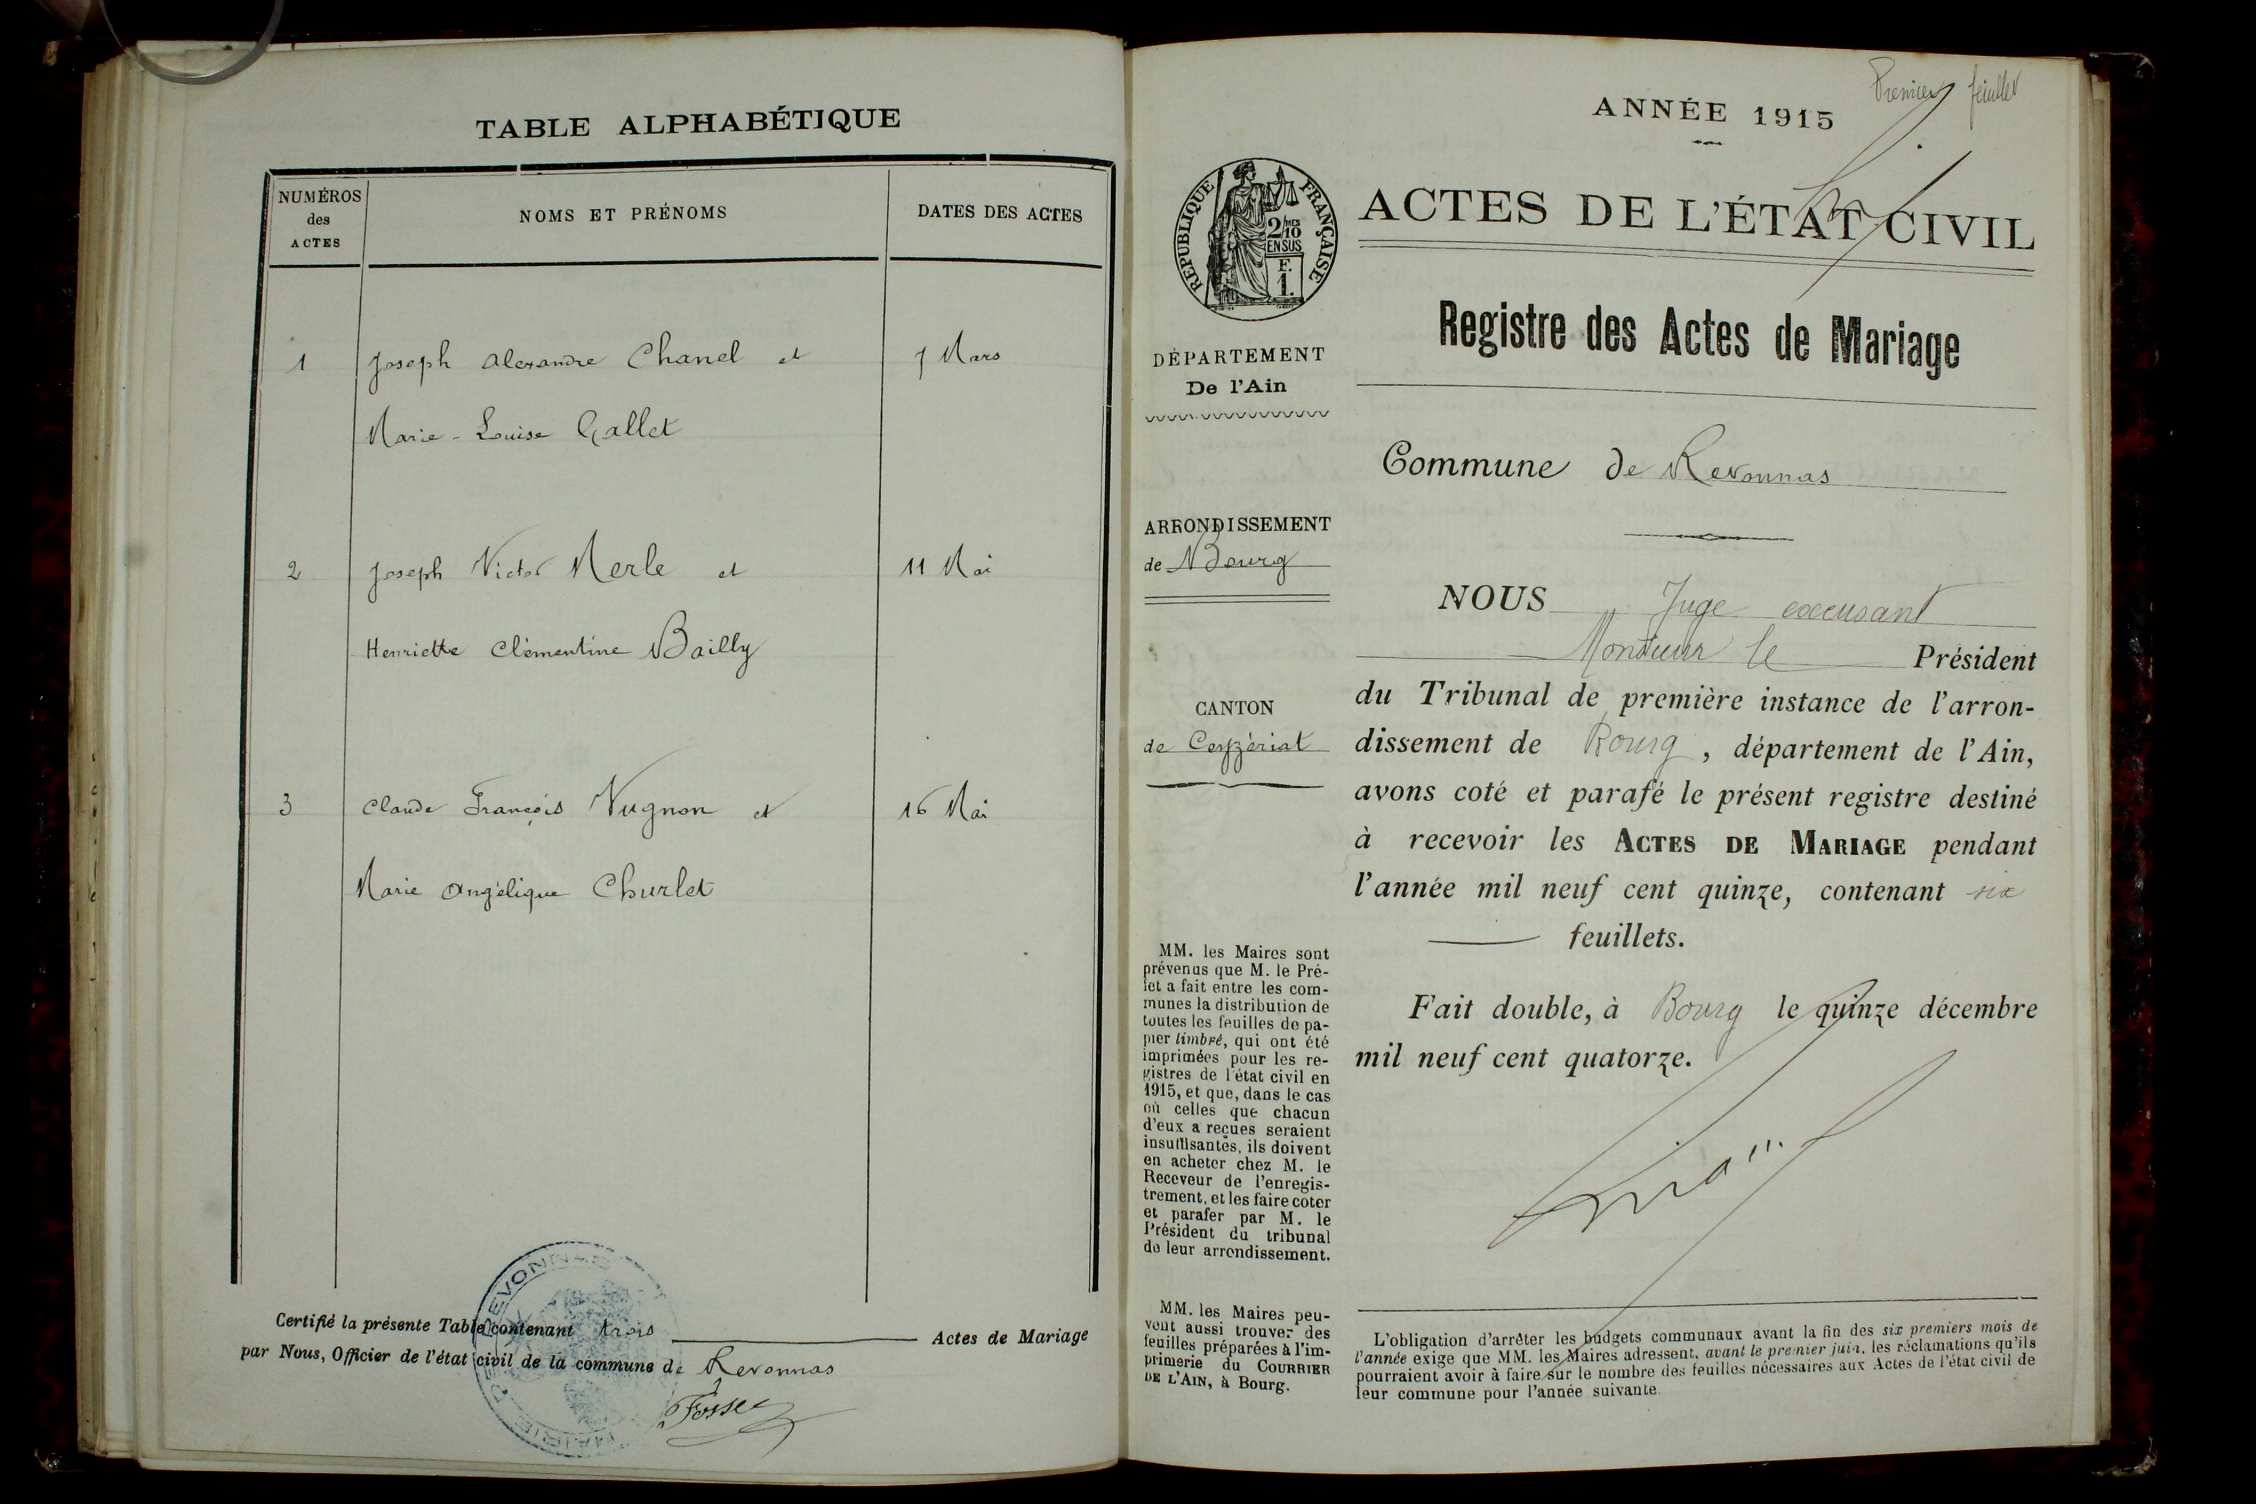 TABLE ALPHABÉTIQUE
NUMÉROS
des
ACTES
NOMS ET PRÉNOMS
DATES DES ACTES
1 Joseph Alexandre Chanel et 7 Mars
Marie-Louise Gallet
2 Joseph Victor Merle et 11 Mai
Henriette Clémentine Bailly
3 Claude François Vugnon et 16 Mai
Marie Angélique Churlet
Certifié la présente Table contenant trois Actes de Mariage
par Nous, Officier de l'état civil de la commune de Revonnas
Fosse
MAIRIE DE REVONNAS
Premier feuillet
ANNÉE 1915
RÉPUBLIQUE FRANÇAISE
2/10 MES
EN SUS
F.
1.
ACTES DE L'ÉTAT CIVIL
Registre des Actes de Mariage
DÉPARTEMENT
De l'Ain
Commune de Revonnas
ARRONDISSEMENT
de Bourg
CANTON
de Ceyzériat
MM. les Maires sont
prévenus que M. le Pré-
fet a fait entre les com-
munes la distribution de
toutes les feuilles de pa-
pier timbré, qui ont été
imprimées pour les re-
gistres de l'état civil en
1915, et que, dans le cas
où celles que chacun
d'eux a reçues seraient
insuffisantes, ils doivent
en acheter chez M. le
Receveur de l'enregis-
trement, et les faire coter
et parafer par M. le
Président du tribunal
de leur arrondissement.
MM. les Maires peu-
vent aussi trouver des
feuilles préparées à l'im-
primerie du COURRIER
DE L'AIN, à Bourg.
NOUS Juge excusant
Monsieur le Président
du Tribunal de première instance de l'arron-
dissement de Bourg, département de l'Ain,
avons coté et parafé le présent registre destiné
à recevoir les ACTES DE MARIAGE pendant
l'année mil neuf cent quinze, contenant six
feuillets.
Fait double, à Bourg le quinze décembre
mil neuf cent quatorze.
L'obligation d'arrêter les budgets communaux avant la fin des six premiers mois de
l'année exige que MM. les Maires adressent, avant le premier juin, les réclamations qu'ils
pourraient avoir à faire sur le nombre des feuilles nécessaires aux Actes de l'état civil de
leur commune pour l'année suivante.